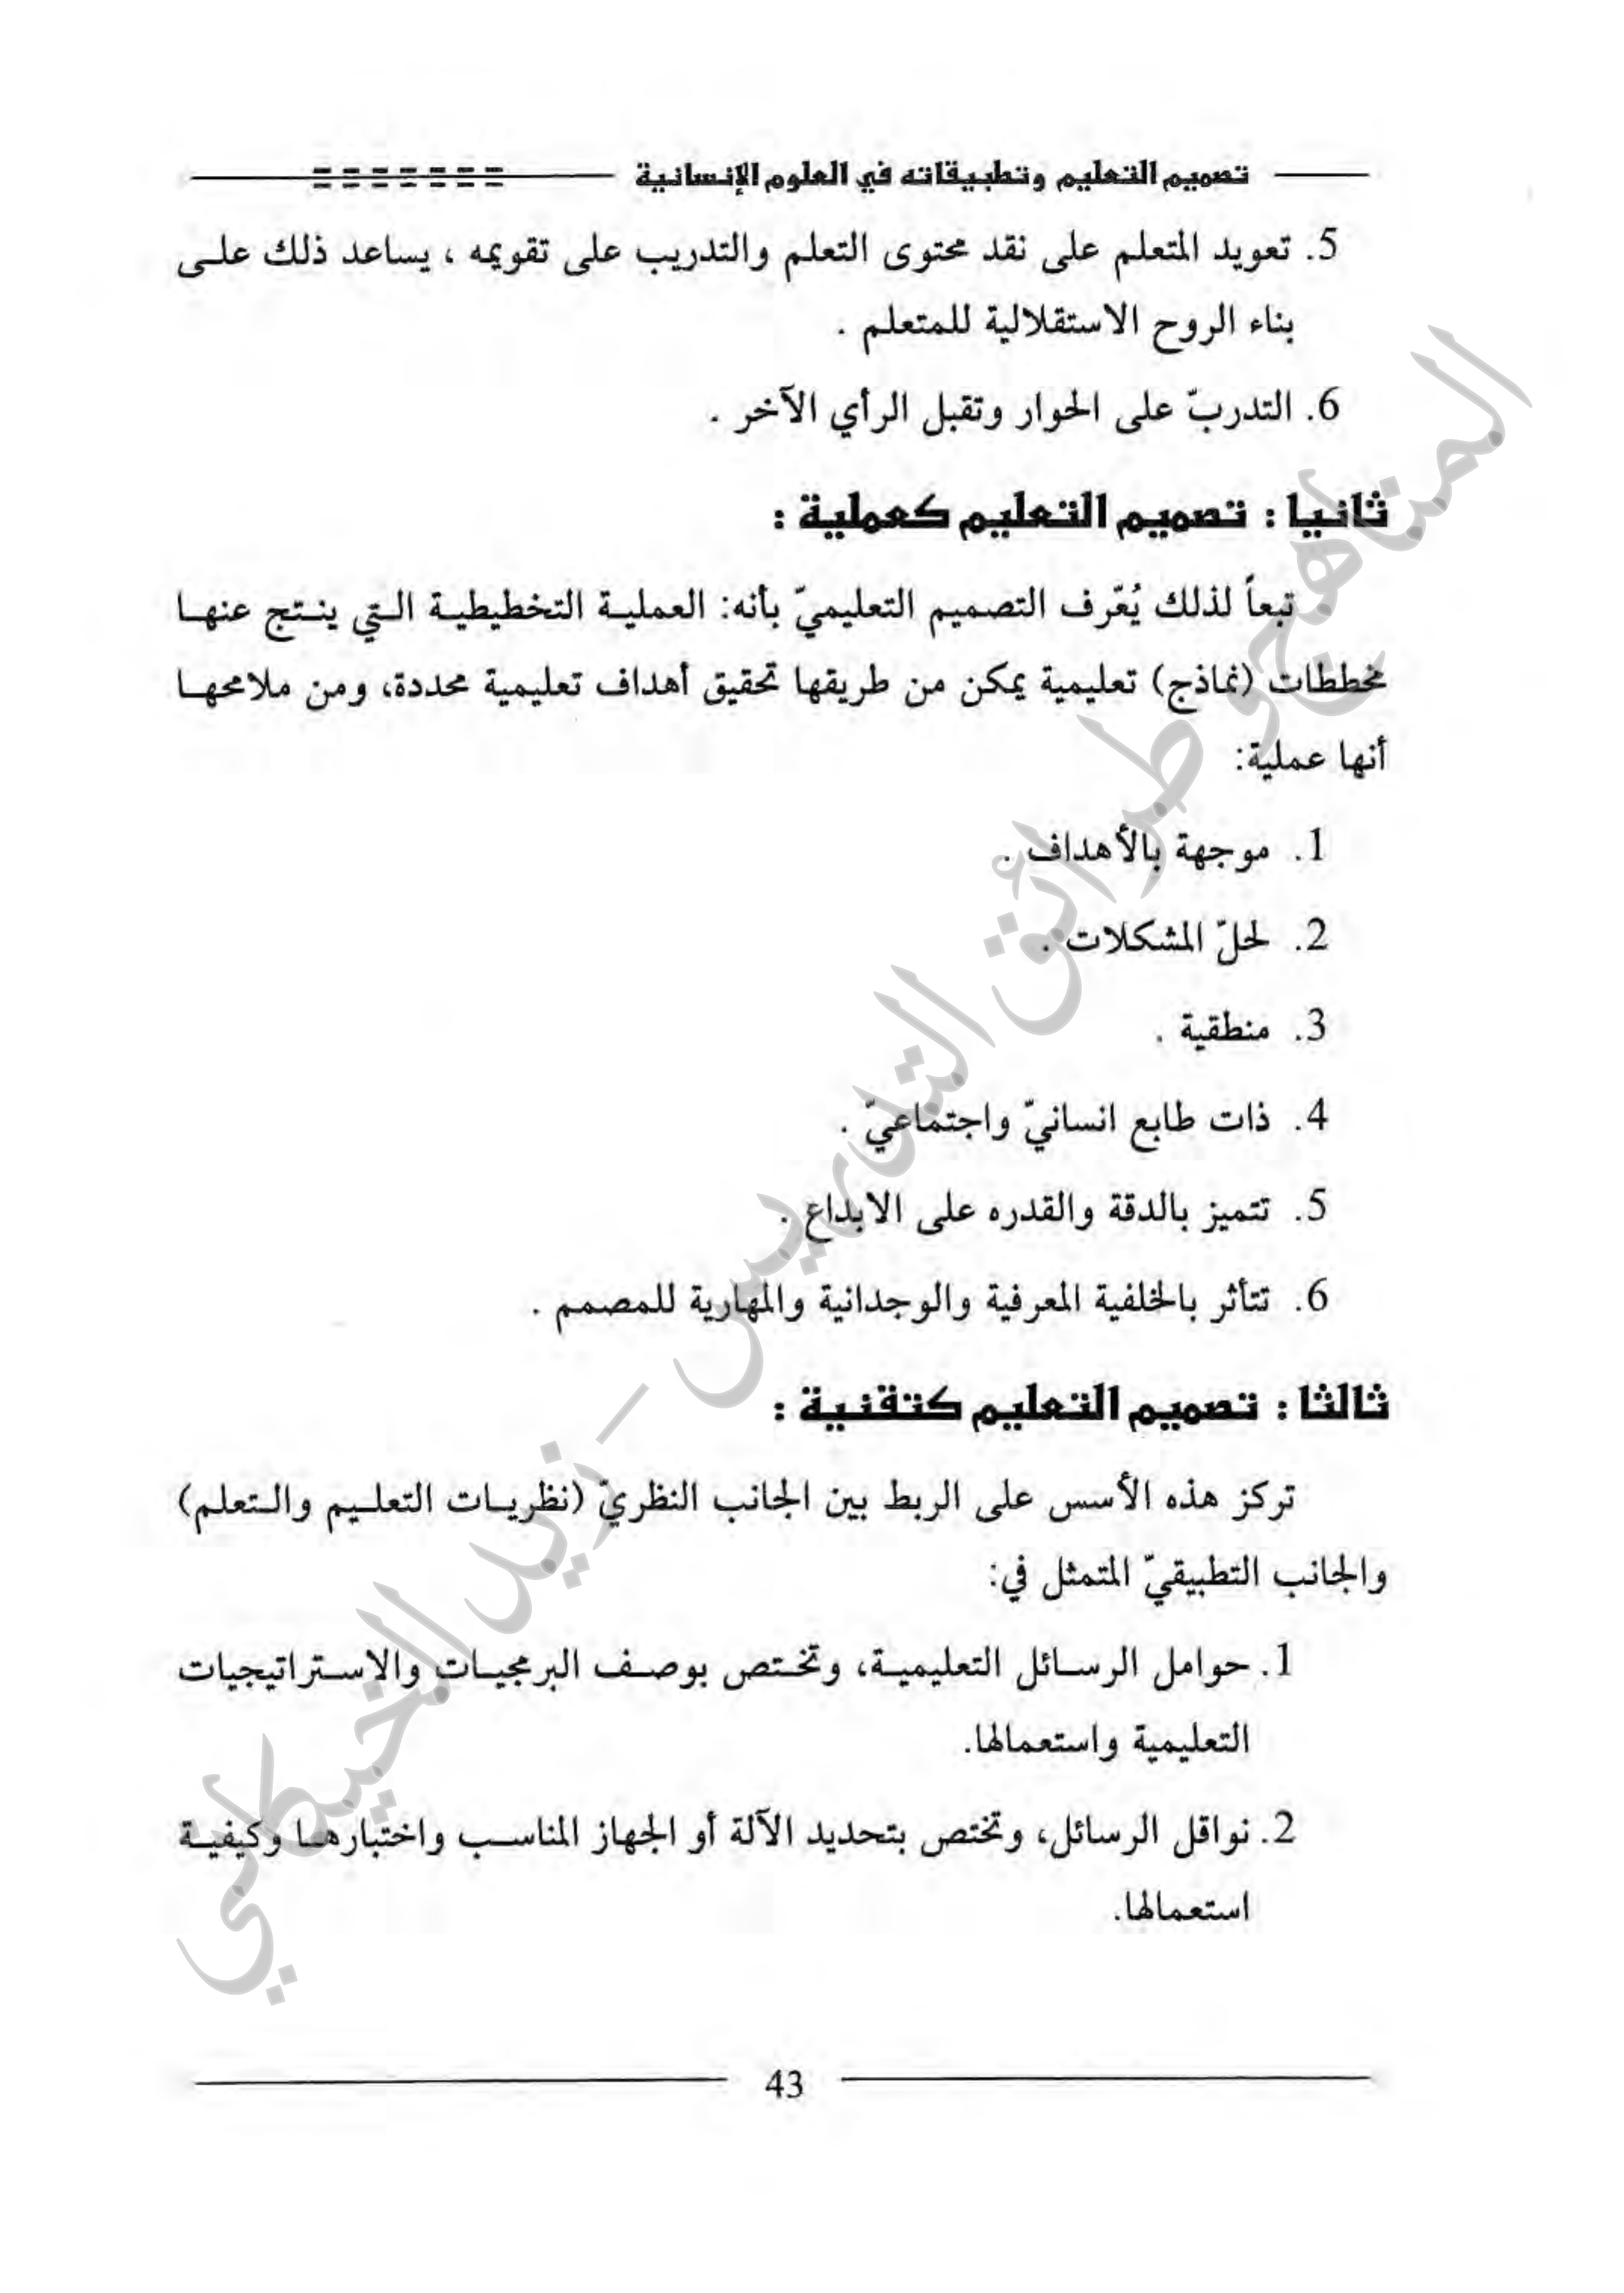 تصميم التعليم وتطبيقاته في العلوم الإنسانية
5. تعويد المتعلم على نقد محتوى التعلم والتدريب على تقويمه ، يساعد ذلك على
بناء الروح الاستقلالية للمتعلم .
6. التدربّ على الحوار وتقبل الرأي الآخر .
ثانيا : تصميم التعليم كعملية :
تبعاً لذلك يُعّرف التصميم التعليميّ بأنه: العملية التخطيطية التي ينتج عنها
مخططات (نماذج) تعليمية يمكن من طريقها تحقيق أهداف تعليمية محددة، ومن ملامحها
أنها عملية:
1. موجهة بالأهداف .
2. لحلّ المشكلات .
3. منطقية .
4. ذات طابع انسانيّ واجتماعيّ .
5. تتميز بالدقة والقدره على الابداع .
6. تتأثر بالخلفية المعرفية والوجدانية والمهارية للمصمم .
ثالثا : تصميم التعليم كتقنية :
تركز هذه الأسس على الربط بين الجانب النظريّ (نظريات التعليم والتعلم)
والجانب التطبيقيّ المتمثل في:
1. حوامل الرسائل التعليمية، وتختص بوصف البرمجيات والاستراتيجيات
التعليمية واستعمالها.
2. نواقل الرسائل، وتختص بتحديد الآلة أو الجهاز المناسب واختبارها وكيفية
استعمالها.
43
المناهج وطرائق التدريس - زيد الخيكاني